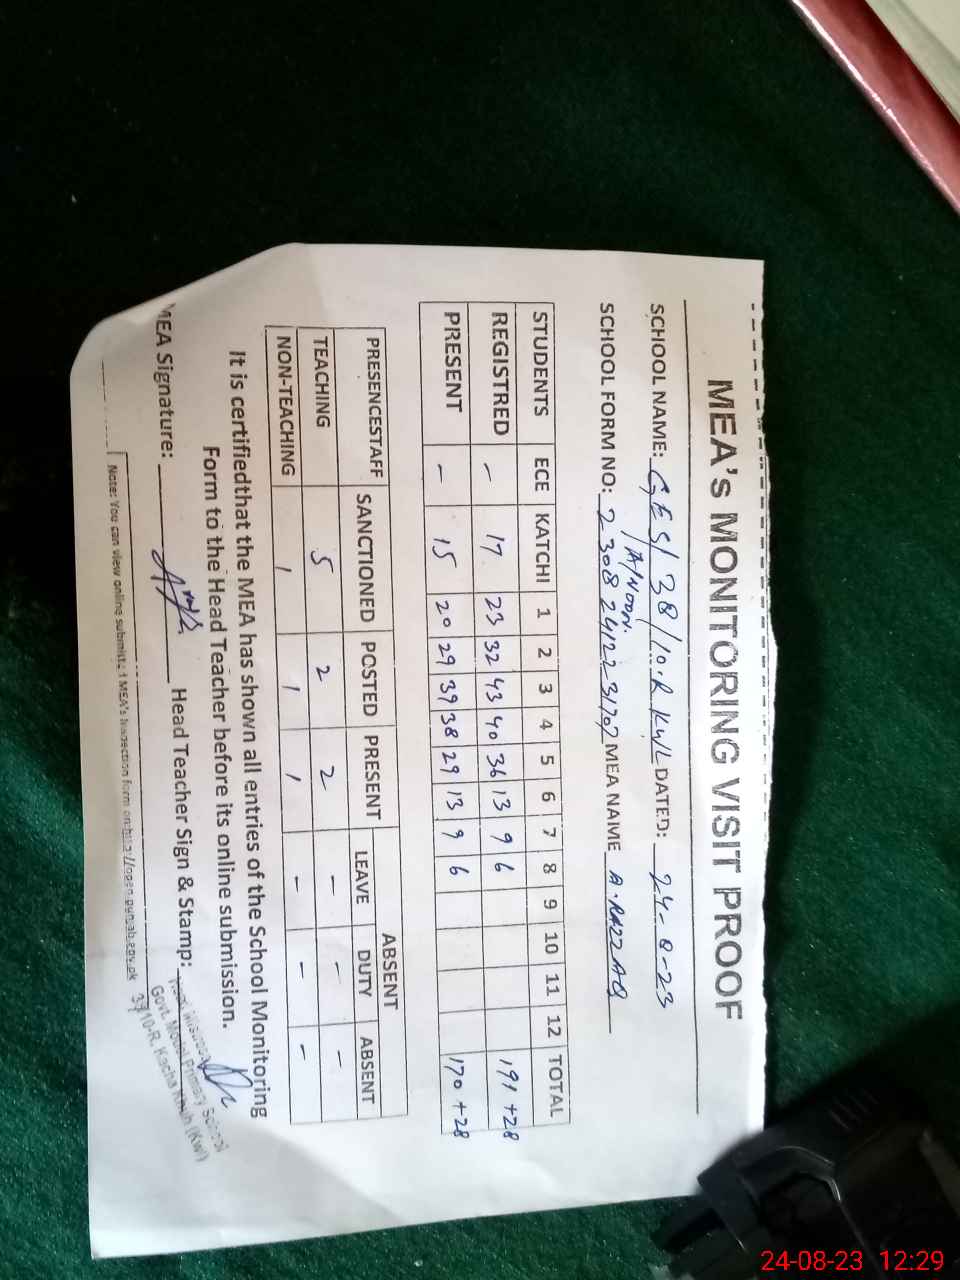 MEA's MONITORING VISIT PROOF
SCHOOL NAME: GES/38/10.R KWL DATED: 24-8-23
A/Noon.
SCHOOL FORM NO: MEA NAME A.RAZZAQ
STUDENTS ECE KATCHI 1 2 3 4 5 6 7 8 9 10 11 12 TOTAL
REGISTRED - 17 23 32 43 40 36 13 9 6 191+28
PRESENT - 15 20 29 39 38 29 13 9 6 170+28
PRESENCESTAFF SANCTIONED POSTED PRESENT ABSENT
LEAVE DUTY ABSENT
TEACHING 5 2 2 - - -
NON-TEACHING 1 1 1 - - -
It is certifiedthat the MEA has shown all entries of the School Monitoring
Form to the Head Teacher before its online submission.
MEA Signature: Head Teacher Sign & Stamp:
Govt. Model Primary School
10-R. Kacha Khuh (Kwl)
Note: You can view online submitted MEA's Inspection form on:http://open.punjab.gov.pk
24-08-23 12:29